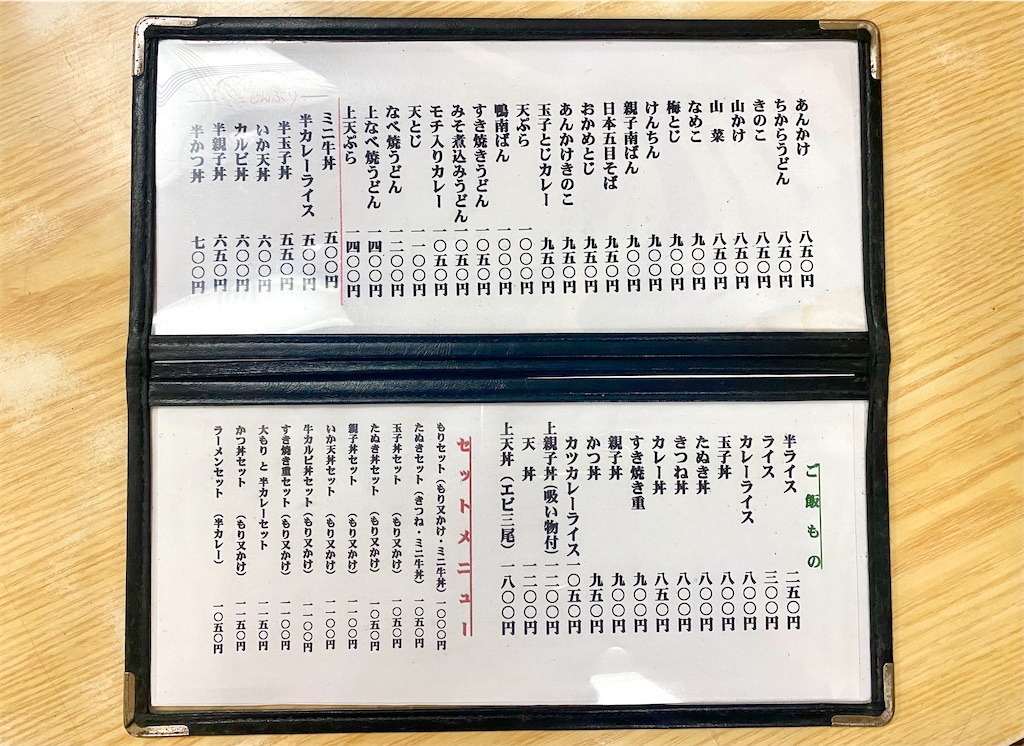 あんかけ 八五〇円
ちからうどん 八五〇円
きのこ 八五〇円
山かけ 八五〇円
山菜 八五〇円
なめこ 九〇〇円
梅とじ 九〇〇円
けんちん 九〇〇円
親子南ばん 九〇〇円
日本五目そば 九五〇円
おかめとじ 九五〇円
あんかけきのこ 九五〇円
玉子とじカレー 九五〇円
天ぷら 一〇〇〇円
鴨南ばん 一〇〇〇円
すき焼きうどん 一〇五〇円
みそ煮込みうどん 一〇五〇円
モチ入りカレー 一〇五〇円
天とじ 一一〇〇円
なべ焼うどん 一二〇〇円
上なべ焼うどん 一四〇〇円
上天ぷら 一四〇〇円
どんぶり
ミニ牛丼 五〇〇円
半カレーライス 五〇〇円
半玉子丼 五五〇円
いか天丼 六〇〇円
カルビ丼 六〇〇円
半親子丼 六五〇円
半かつ丼 七〇〇円
ご飯もの
半ライス 二五〇円
ライス 三〇〇円
カレーライス 八〇〇円
玉子丼 八〇〇円
たぬき丼 八〇〇円
きつね丼 八〇〇円
カレー丼 八五〇円
すき焼き重 九〇〇円
親子丼 九〇〇円
かつ丼 九五〇円
カツカレーライス 一〇五〇円
上親子丼（吸い物付） 一二〇〇円
天丼 一二〇〇円
上天丼（エビ三尾） 一八〇〇円
セットメニュー
もりセット（もり又かけ・ミニ牛丼） 一〇〇〇円
たぬきセット（きつね・ミニ牛丼） 一〇五〇円
玉子丼セット（もり又かけ） 一〇五〇円
たぬき丼セット（もり又かけ） 一〇五〇円
親子丼セット（もり又かけ） 一一〇〇円
いか天丼セット（もり又かけ） 一一〇〇円
牛カルビ丼セット（もり又かけ） 一一〇〇円
すき焼き重セット（もり又かけ） 一一〇〇円
大もり と 半カレーセット 一一五〇円
かつ丼セット（もり又かけ） 一一五〇円
ラーメンセット（半カレー） 一〇五〇円